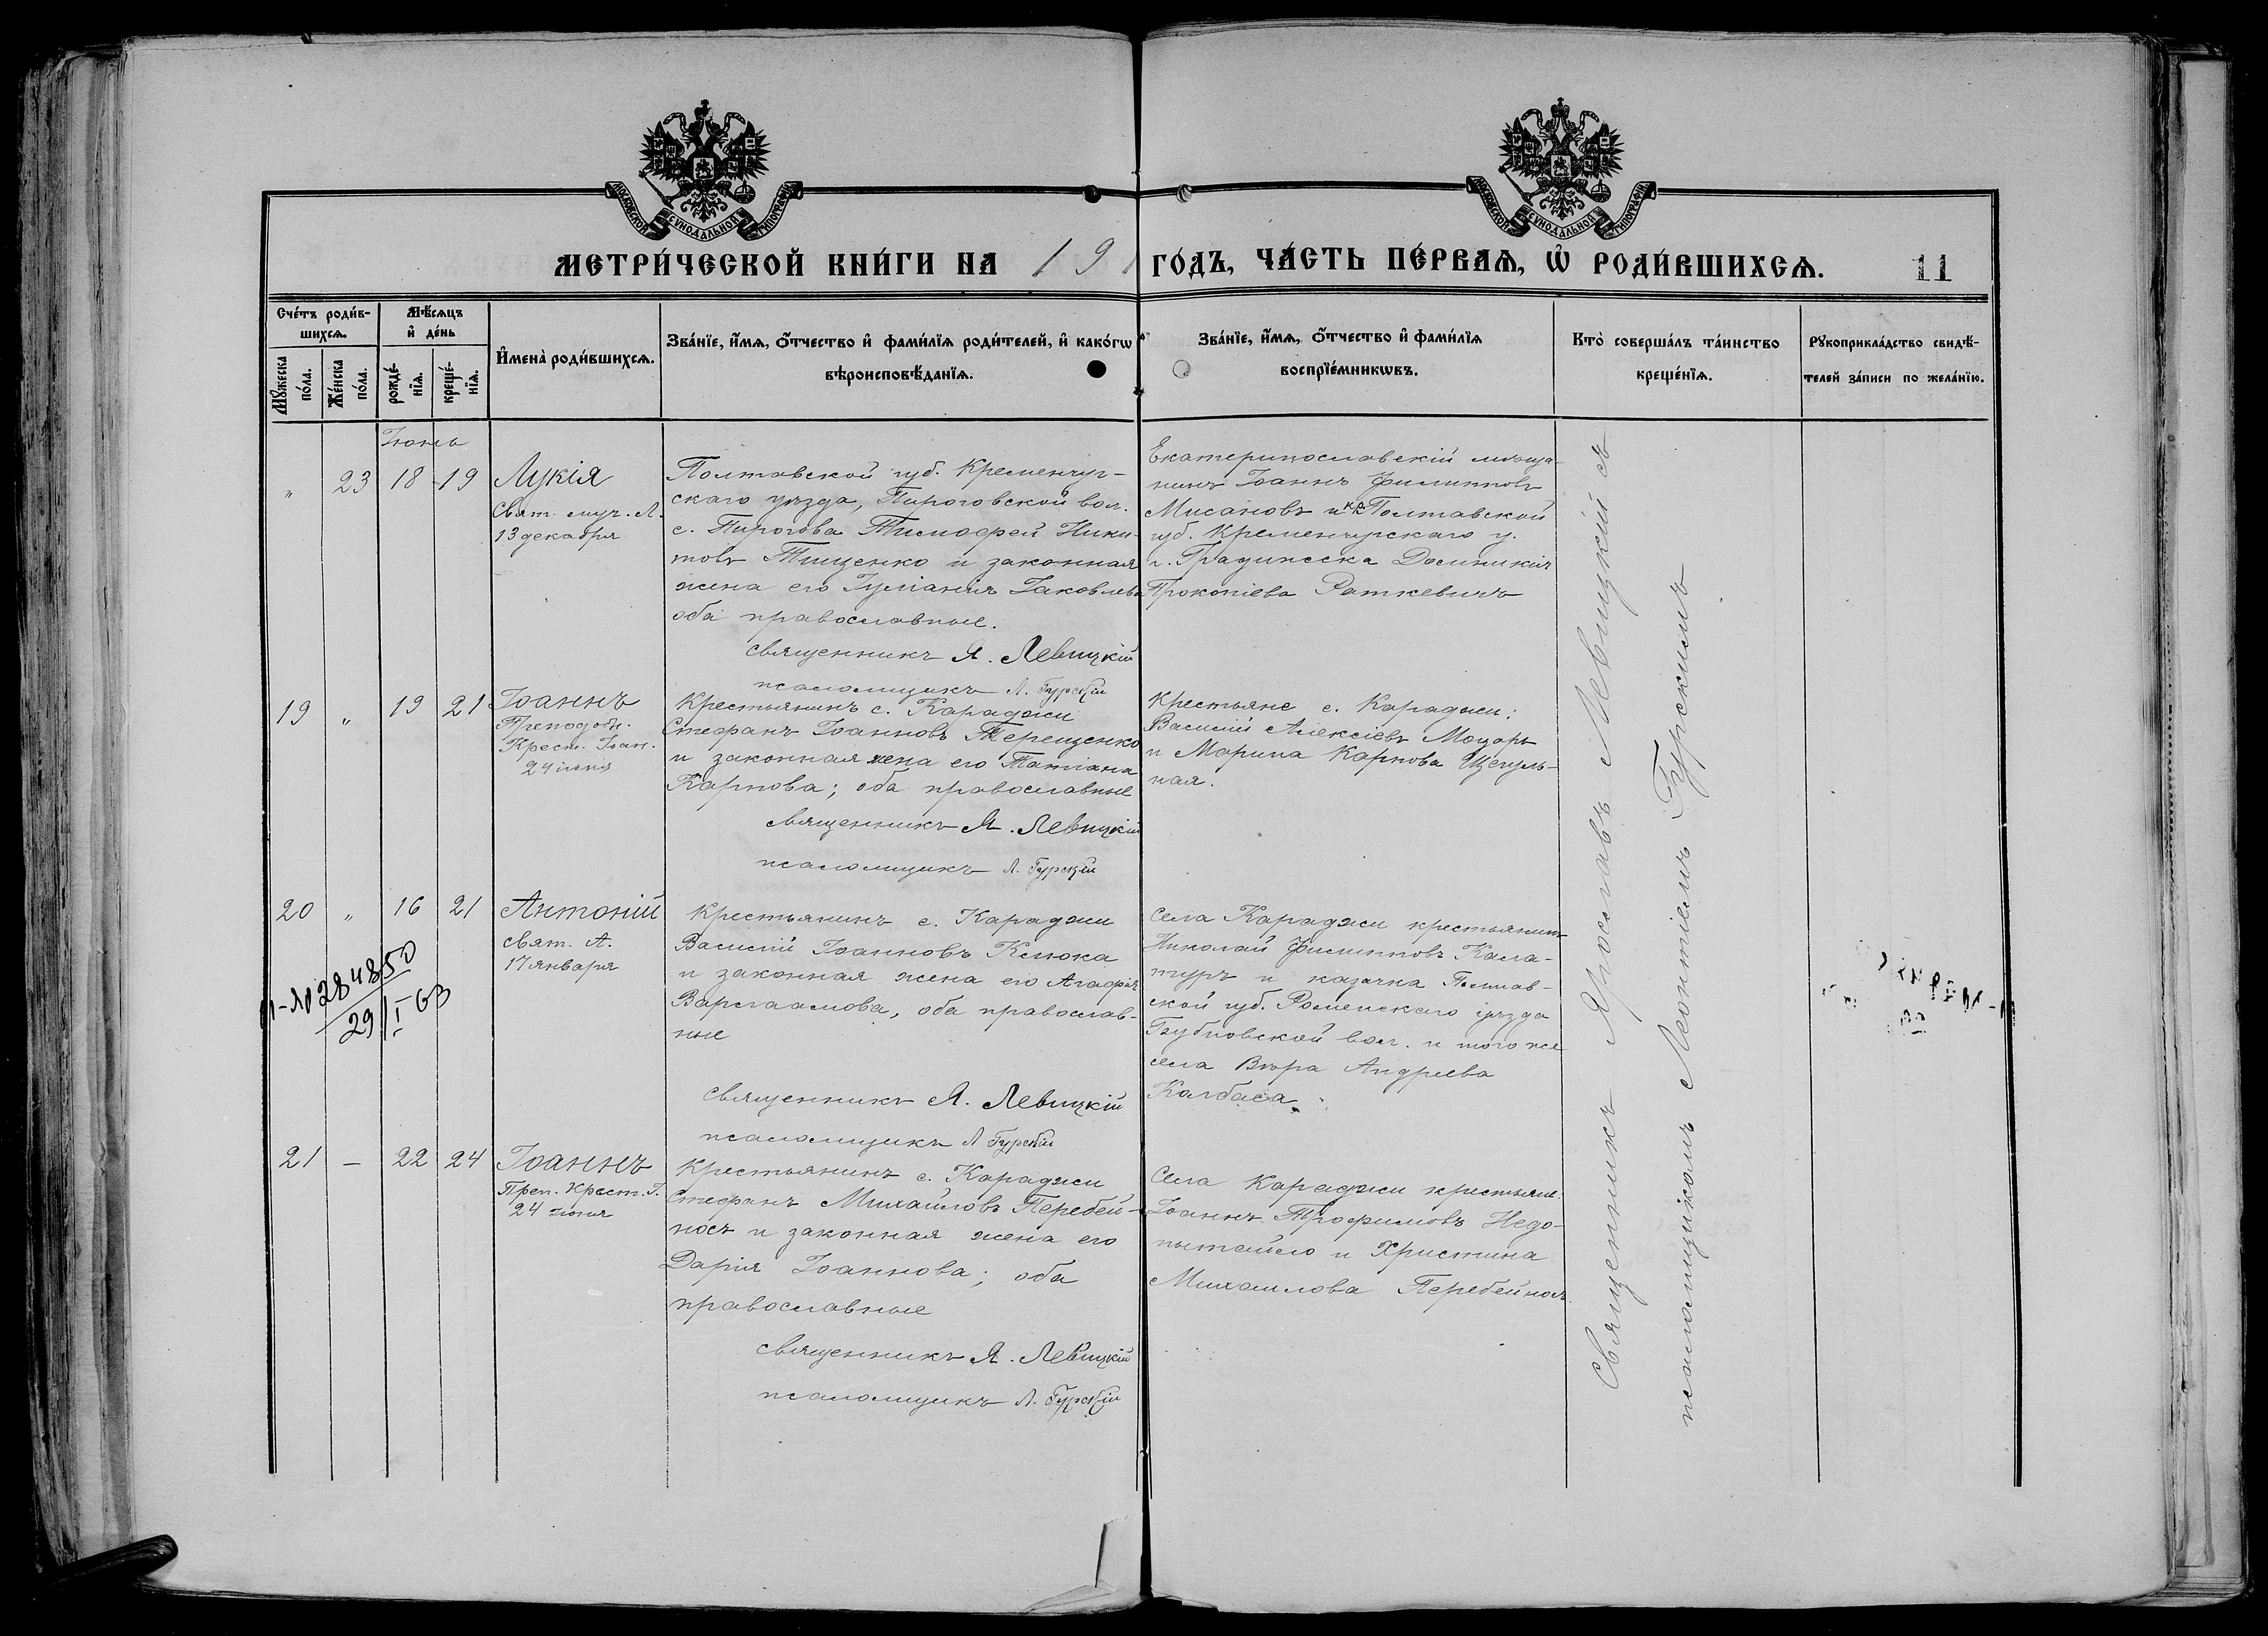 МОСКОВСКОЙ СУНОДАЛЬНОЙ ТИПОГРАФІИ
МОСКОВСКОЙ СУНОДАЛЬНОЙ ТИПОГРАФІИ
МЕТРИ́ЧЕСКОЙ КНИ́ГИ НА 191 ГО́ДЪ, ЧА́СТЬ ПЕ́РВАѦ, Ѡ҆ РОДИ́ВШИХСѦ. 11
Сче́тъ роди́в-
шихсѧ.
Мꙋ́жеска
по́ла.
Же́нска
по́ла.
Мѣ́сѧцъ
и҆ де́нь
рожде́-
нїѧ.
креще́-
нїѧ.
И҆мена̀ роди́вшихсѧ.
Зва́нїе, и҆́мѧ, ѻ҆́тчество и҆ фами́лїѧ роди́телей, и҆ како́гѡ
вѣроисповѣ́данїѧ.
Зва́нїе, и҆́мѧ, ѻ҆́тчество и҆ фами́лїѧ
воспрїе́мникѡвъ.
Кто̀ соверша́лъ та́инство
креще́нїѧ.
Рꙋкоприкла́дство свидѣ́-
телей за́писи по жела́нїю.
Іюнь
" 23 18 19 Лукія
Свят. муч. Л.
13 декабря
Полтавской губ. Кременчуг-
скаго уѣзда, Пироговской вол.
с. Пирогова Тимофей Ники-
товъ Тищенко и законная
жена его Іуліанія Іаковлева
оба православные.
священникъ Я. Левицкій
псаломщикъ Л. Гурскій
Екатеринославскій мѣща-
нинъ Іоаннъ Филипповъ
Мисановъ и кр. Полтавской
губ. Кременчугскаго у.
Прокопіева Раткевичъ
19 " 19 21 Іоаннъ
Преподобн.
Крест. Іоан.
24 іюня
Крестьянинъ с. Караджи
Стефанъ Іоанновъ Терещенко
и законная жена его Татіана
Карпова; оба православные
священникъ Я. Левицкій
псаломщикъ Л. Гурскій
Крестьяне с. Караджи:
Василій Алексіевъ Моцарь
и Марина Карпова Щегуль-
ная.
20 " 16 21 Антоній
свят. А.
17 января
284850
29/I 63
Крестьянинъ с. Караджи
Василій Іоанновъ Клюка
и законная жена его Агафія
Варлаамова, оба православ-
ные
священникъ Я. Левицкій
псаломщикъ Л Гурскій
Села Караджи крестьянинъ
Николай Филипповъ Кала-
туръ и казачка Полтав-
ской губ. Роменскаго уѣзда
вол. и того же
села Вѣра Андреева
Калбаса.
21 — 22 24 Іоаннъ
Преп. Крест. І.
24 іюня
Крестьянинъ с. Караджи
Стефанъ Михайловъ Перебей-
носъ и законная жена его
Дарія Іоаннова; оба
православные
священникъ Я. Левицкій
псаломщикъ Л. Гурскій
Села Караджи крестьяне:
Іоаннъ Трофимовъ Недо-
пытайло и Христина
Михаилова Перебейносъ
Священникъ Ярославъ Левицкій съ
псаломщикомъ Леонтіемъ Гурскимъ